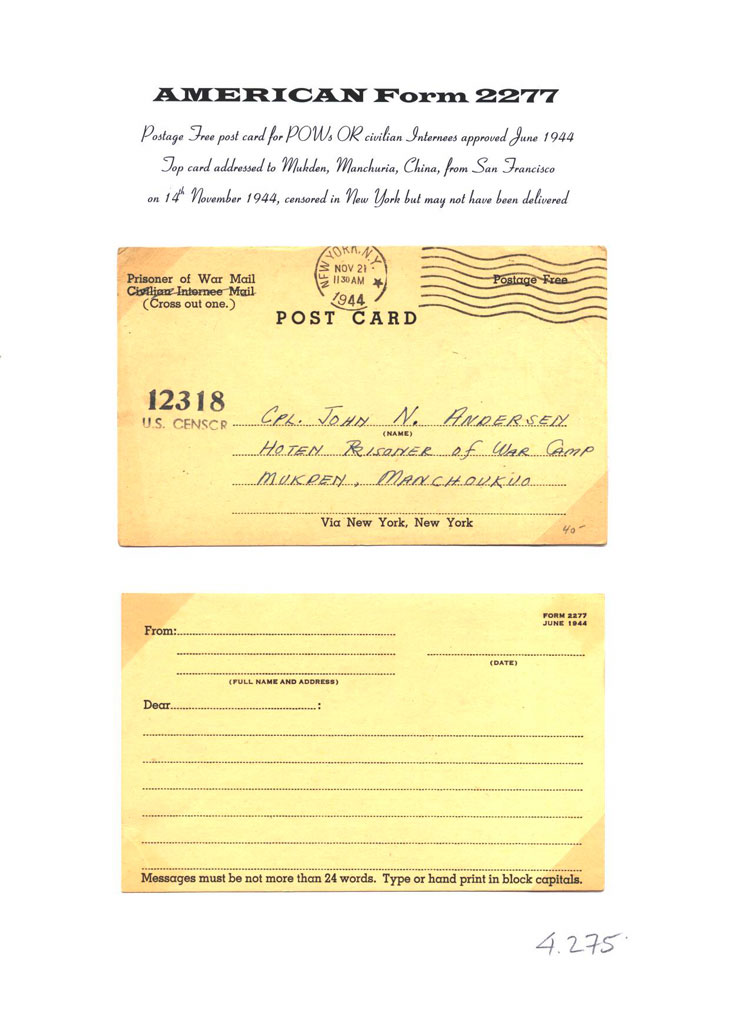 AMERICAN Form 2277
Postage Free post card for POWs OR civilian Internees approved June 1944
Top card addressed to Mukden, Manchuria, China, from San Francisco
on 14th November 1944, censored in New York but may not have been delivered
NEW YORK, N.Y.
NOV 21
11 30 AM
1944
Prisoner of War Mail
Civilian Internee Mail
(Cross out one.)
Postage Free
POST CARD
12318
U.S. CENSOR
CPL. JOHN N. ANDERSEN
(NAME)
HOTEN PRISONER of WAR CAMP
MUKDEN, MANCHOUKUO
Via New York, New York
40-
FORM 2277
JUNE 1944
From:
(DATE)
(FULL NAME AND ADDRESS)
Dear :
Messages must be not more than 24 words. Type or hand print in block capitals.
4.275